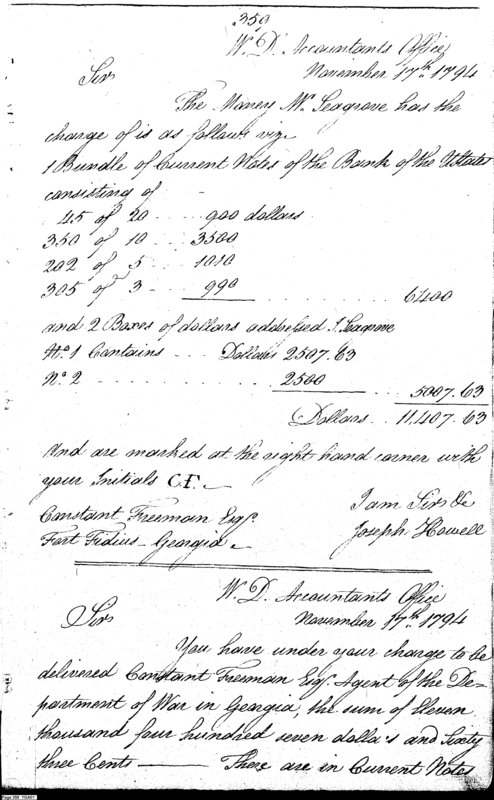 350
W. D. Accountants Office
November 17th 1794
Sir
The Money Mr. Seagrove has the
charge of is as follows viz
1 Bundle of Current Notes of the Bank of the UStates
consisting of
45 of 20 .... 900 dollars
350 of 10 ... 3500
202 of 5 ... 1010
305 of 3 ... 990 .......... 6400
and 2 Boxes of dollars addressed J. Seagrove
No. 1 Contains .... Dollars 2507.63
No. 2 ............ 2500 5007.63
Dollars .. 11,407.63
And are marked at the right hand corner with
your Initials C.F.
I am Sir &c
Constant Freeman Esqr.
Joseph Howell
Fort Fidius - Georgia
W. D. Accountants Office
November 17th 1794
Sir
You have under your charge to be
delivered Constant Freeman Esqr. Agent of the De-
partment of War in Georgia, the sum of Eleven
thousand four hundred seven dollars and Sixty
three Cents —— There are in Current Notes